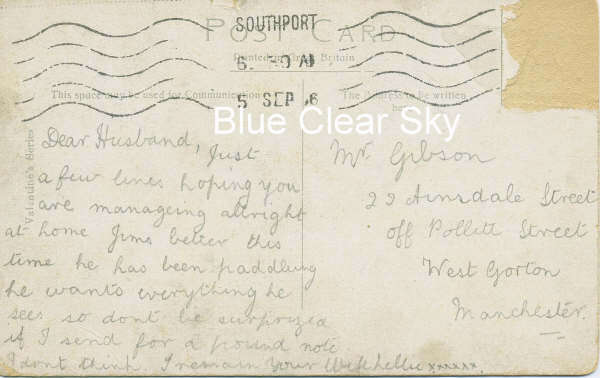 SOUTHPORT
POST CARD
Printed in Great Britain
5 SEP 6
This space may be used for Communication
The Address to be written
Blue Clear Sky
Valentine's Series
Dear Husband, Just
a few lines hoping you
are manageing allright
at home Jims better this
time he has been paddling
he wants everything he
sees so dont be surprized
if I send for a pound note
I dont think. I remain Your Wife xxxxxx.
Mr. Gibson
22 Ainsdale Street
off Pollitt Street
West Gorton
Manchester.